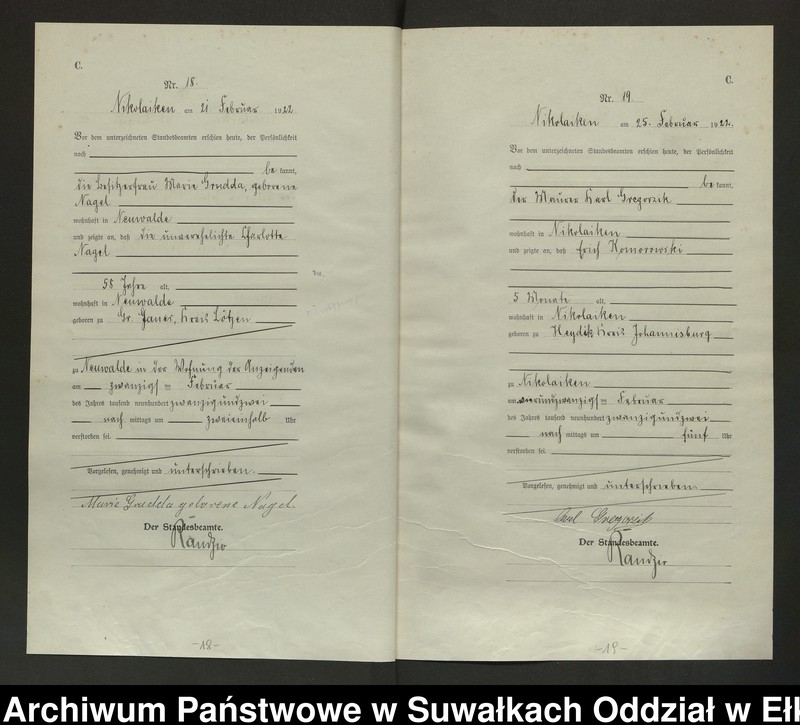 C.
Nr. 18.
Nikolaiken am 21 Februar 1922
Vor dem unterzeichneten Standesbeamten erschien heute, der Persönlichkeit
nach
bekannt,
die Besitzerfrau Marie Grudda, geborene
Nagel
wohnhaft in Neuwalde
und zeigte an, daß die unverehelichte Charlotte
Nagel
58 Jahre alt,
wohnhaft in Neuwalde
geboren zu Gr. Kreis Lötzen
zu Neuwalde in der Wohnung der Anzeigenden
am zwanzigsten Februar
des Jahres tausend neunhundert zwanzigundzwei
nach mittags um zweieinhalb Uhr
verstorben sei.
Vorgelesen, genehmigt und unterschrieben.
Marie Grudda geborene Nagel.
Der Standesbeamte.
Randzio
-18-
C.
Nr. 19.
Nikolaiken am 25. Februar 1922.
Vor dem unterzeichneten Standesbeamten erschien heute, der Persönlichkeit
nach
bekannt,
der Maurer Karl Gregorzik
wohnhaft in Nikolaiken
und zeigte an, daß Erich Komorowski
5 Monate alt,
wohnhaft in Nikolaiken
geboren zu Heydik Kreis Johannisburg
zu Nikolaiken
am vierundzwanzigsten Februar
des Jahres tausend neunhundert zwanzigundzwei
nach mittags um fünf Uhr
verstorben sei.
Vorgelesen, genehmigt und unterschrieben.
Carl Gregorzik
Der Standesbeamte.
Randzio
-19-
Archiwum Państwowe w Suwałkach Oddział w Eł